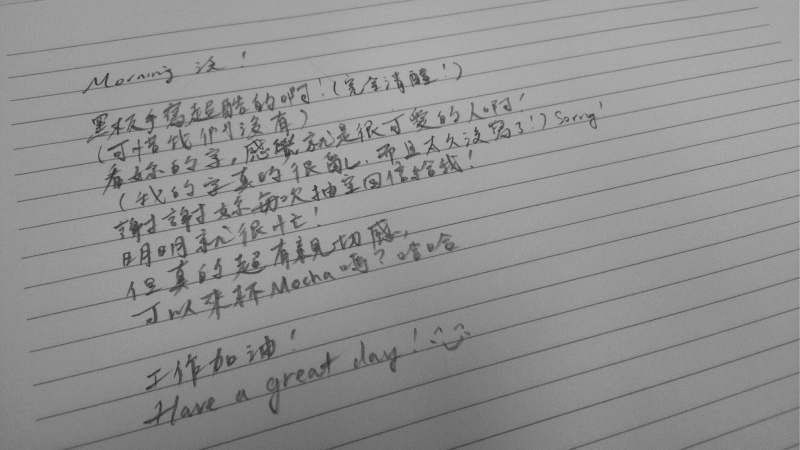 Morning 泫!
黑板手寫超酷的啊!(完全清醒!)
(可惜我們沒有)
看妳的字,感覺就是很可愛的人啊!
(我的字真的很亂,而且太久沒寫了!) Sorry!
謝謝妳每次抽空回信給我!
明明就很忙!
但真的超有親切感,
可以來杯Mocha嗎?哈哈
工作加油!
Have a great day!